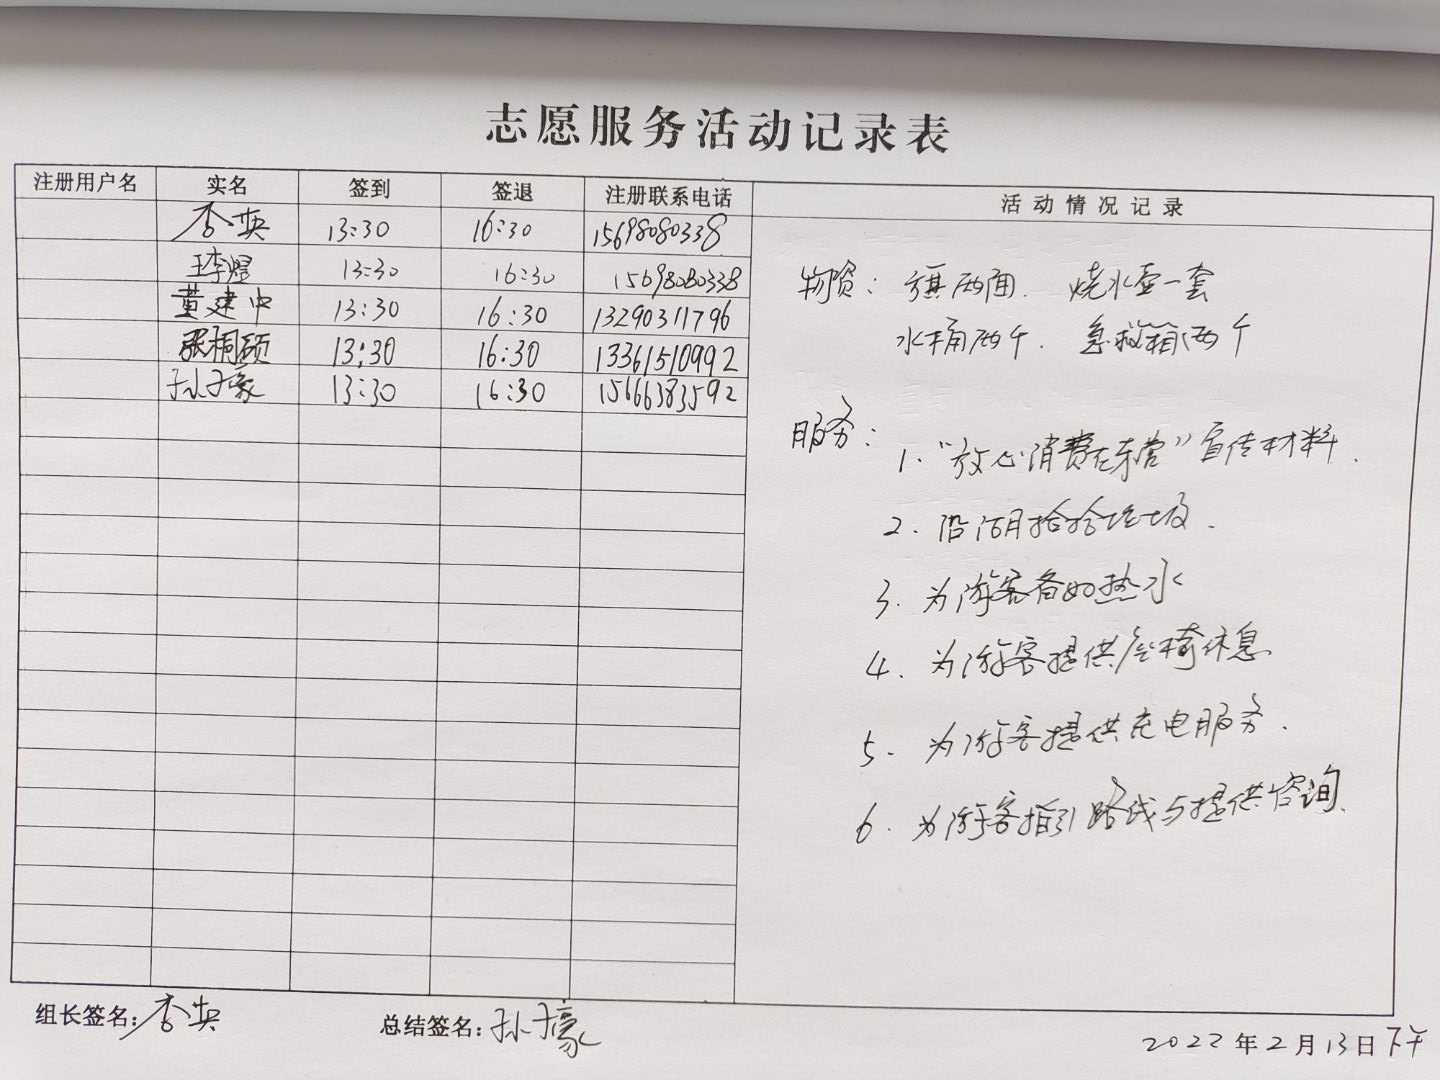 志愿服务活动记录表
注册用户名 实名 签到 签退 注册联系电话 活动情况记录
李英 13:30 16:30 15698080338
王李煜 13:30 16:30 15698080338
黄建中 13:30 16:30 13290311796
张桐硕 13:30 16:30 13361510992
孙子豪 13:30 16:30 15666383592
物资：旗两面. 烧水壶一套
水桶两个. 急救箱两个
服务：
1. “放心消费在东营”宣传材料.
2. 沿湖捡拾垃圾.
3. 为游客备的热水
4. 为游客提供座椅休息
5. 为游客提供充电服务.
6. 为游客指引路线与提供咨询.
组长签名：李英 总结签名：孙子豪
2022年2月13日下午